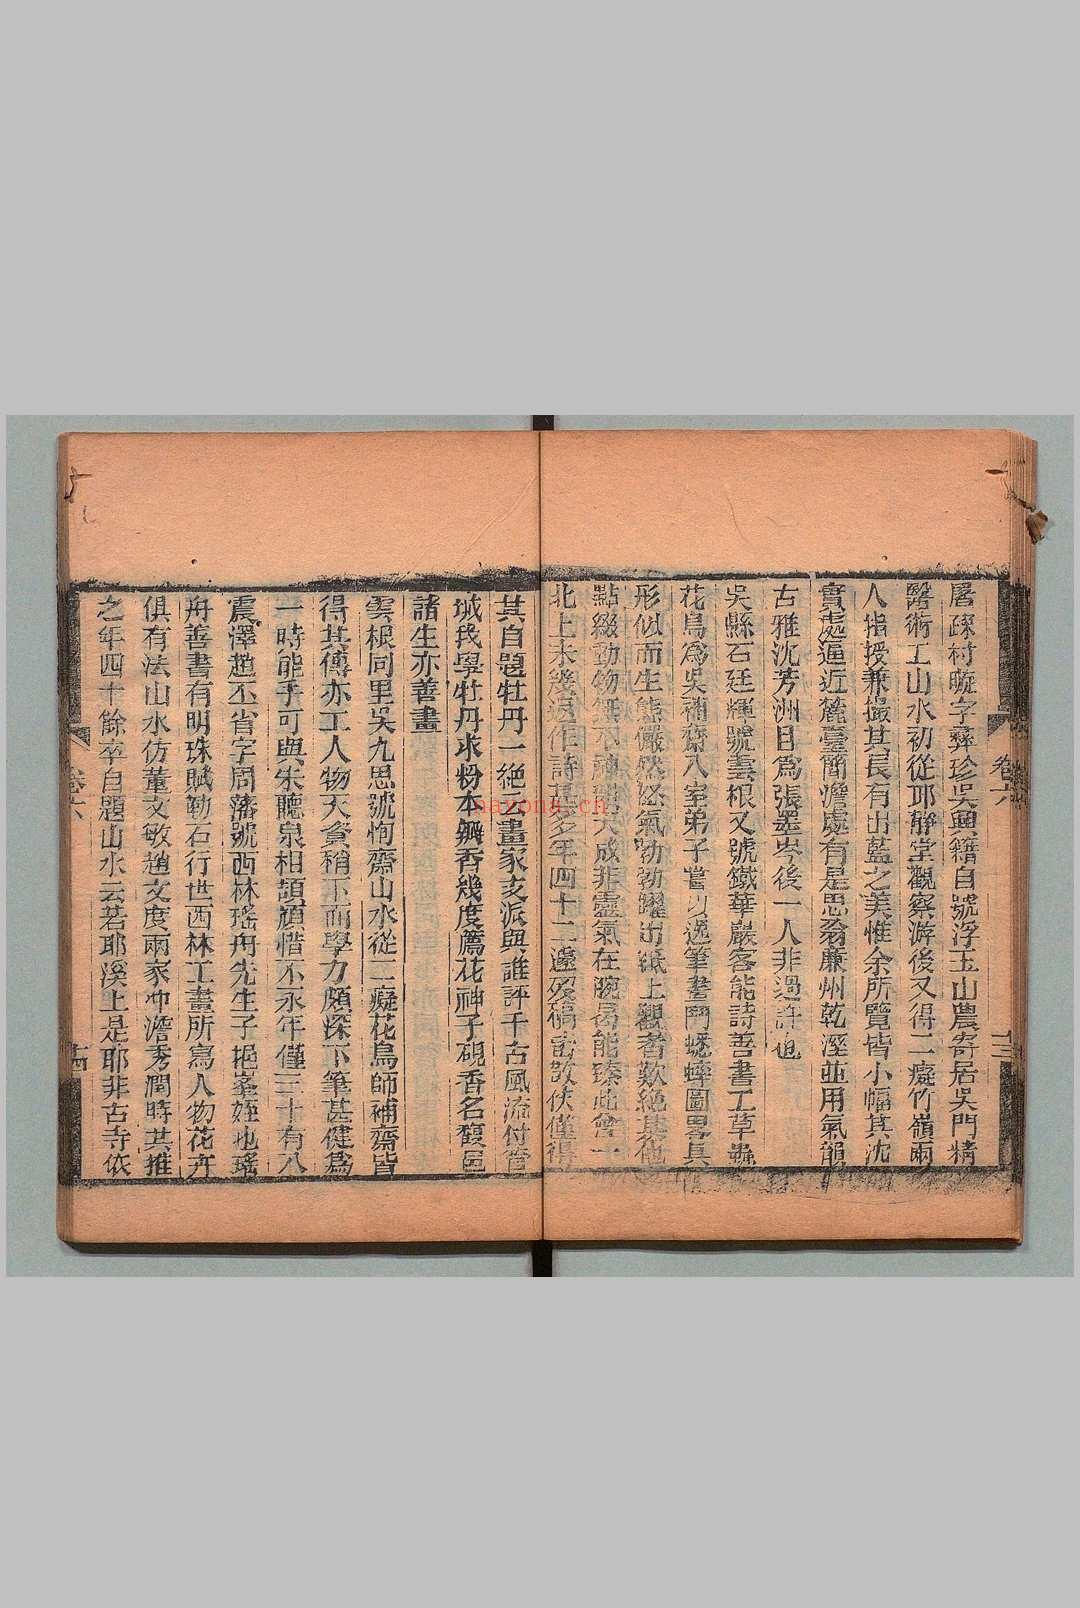 屠疎村䶮字彛珍吳興籍自號浮玉山農寄居吳門精
醫術工山水初從邛靜堂觀察游後又得二癡竹嶺兩
人指授兼撮其長有出藍之美惟余所覽皆小幅其沈
實處逼近麓臺簡澹處有是思翁廉州乾溼並用氣韻
古雅沈芳洲目爲張墨岑後一人非過許也
吳縣石廷輝號雲根又號鐵華巖客能詩善書工草蟲
花鳥爲吳補齋入室弟子嘗以逸筆畫鬥蟋蟀圖畧具
形似而生態儼然怒氣勃勃躍出紙上觀者歎絶其他
點綴動物無不神 天成非靈氣在腕曷能臻此曾一
北上未幾返作詩甚多年四十二遽歿稿 散佚僅得
卷六
十三
其自題牡丹一絶云畫家支派與誰評千古風流付管
城我學牡丹求粉本瓣香幾度薦花神子硯香名馥邑
諸生亦善畫
雲根同里吳九思號恂齋山水從二癡花鳥師補齋皆
得其傳亦工人物天資稍下而學力頗深下筆甚健爲
一時能手可與朱聽泉相頡頏惜不永年僅三十有八
震澤趙丕省字周藩號西林瑤舟先生子挹峯姪也瑤
舟善書有明珠賦勒石行世西林工畫所寫人物花卉
俱有法山水仿董文敏趙文度兩家冲澹秀潤時共推
之年四十餘卒自題山水云若耶溪上是耶非古寺依
卷六
十四
nayona.ch